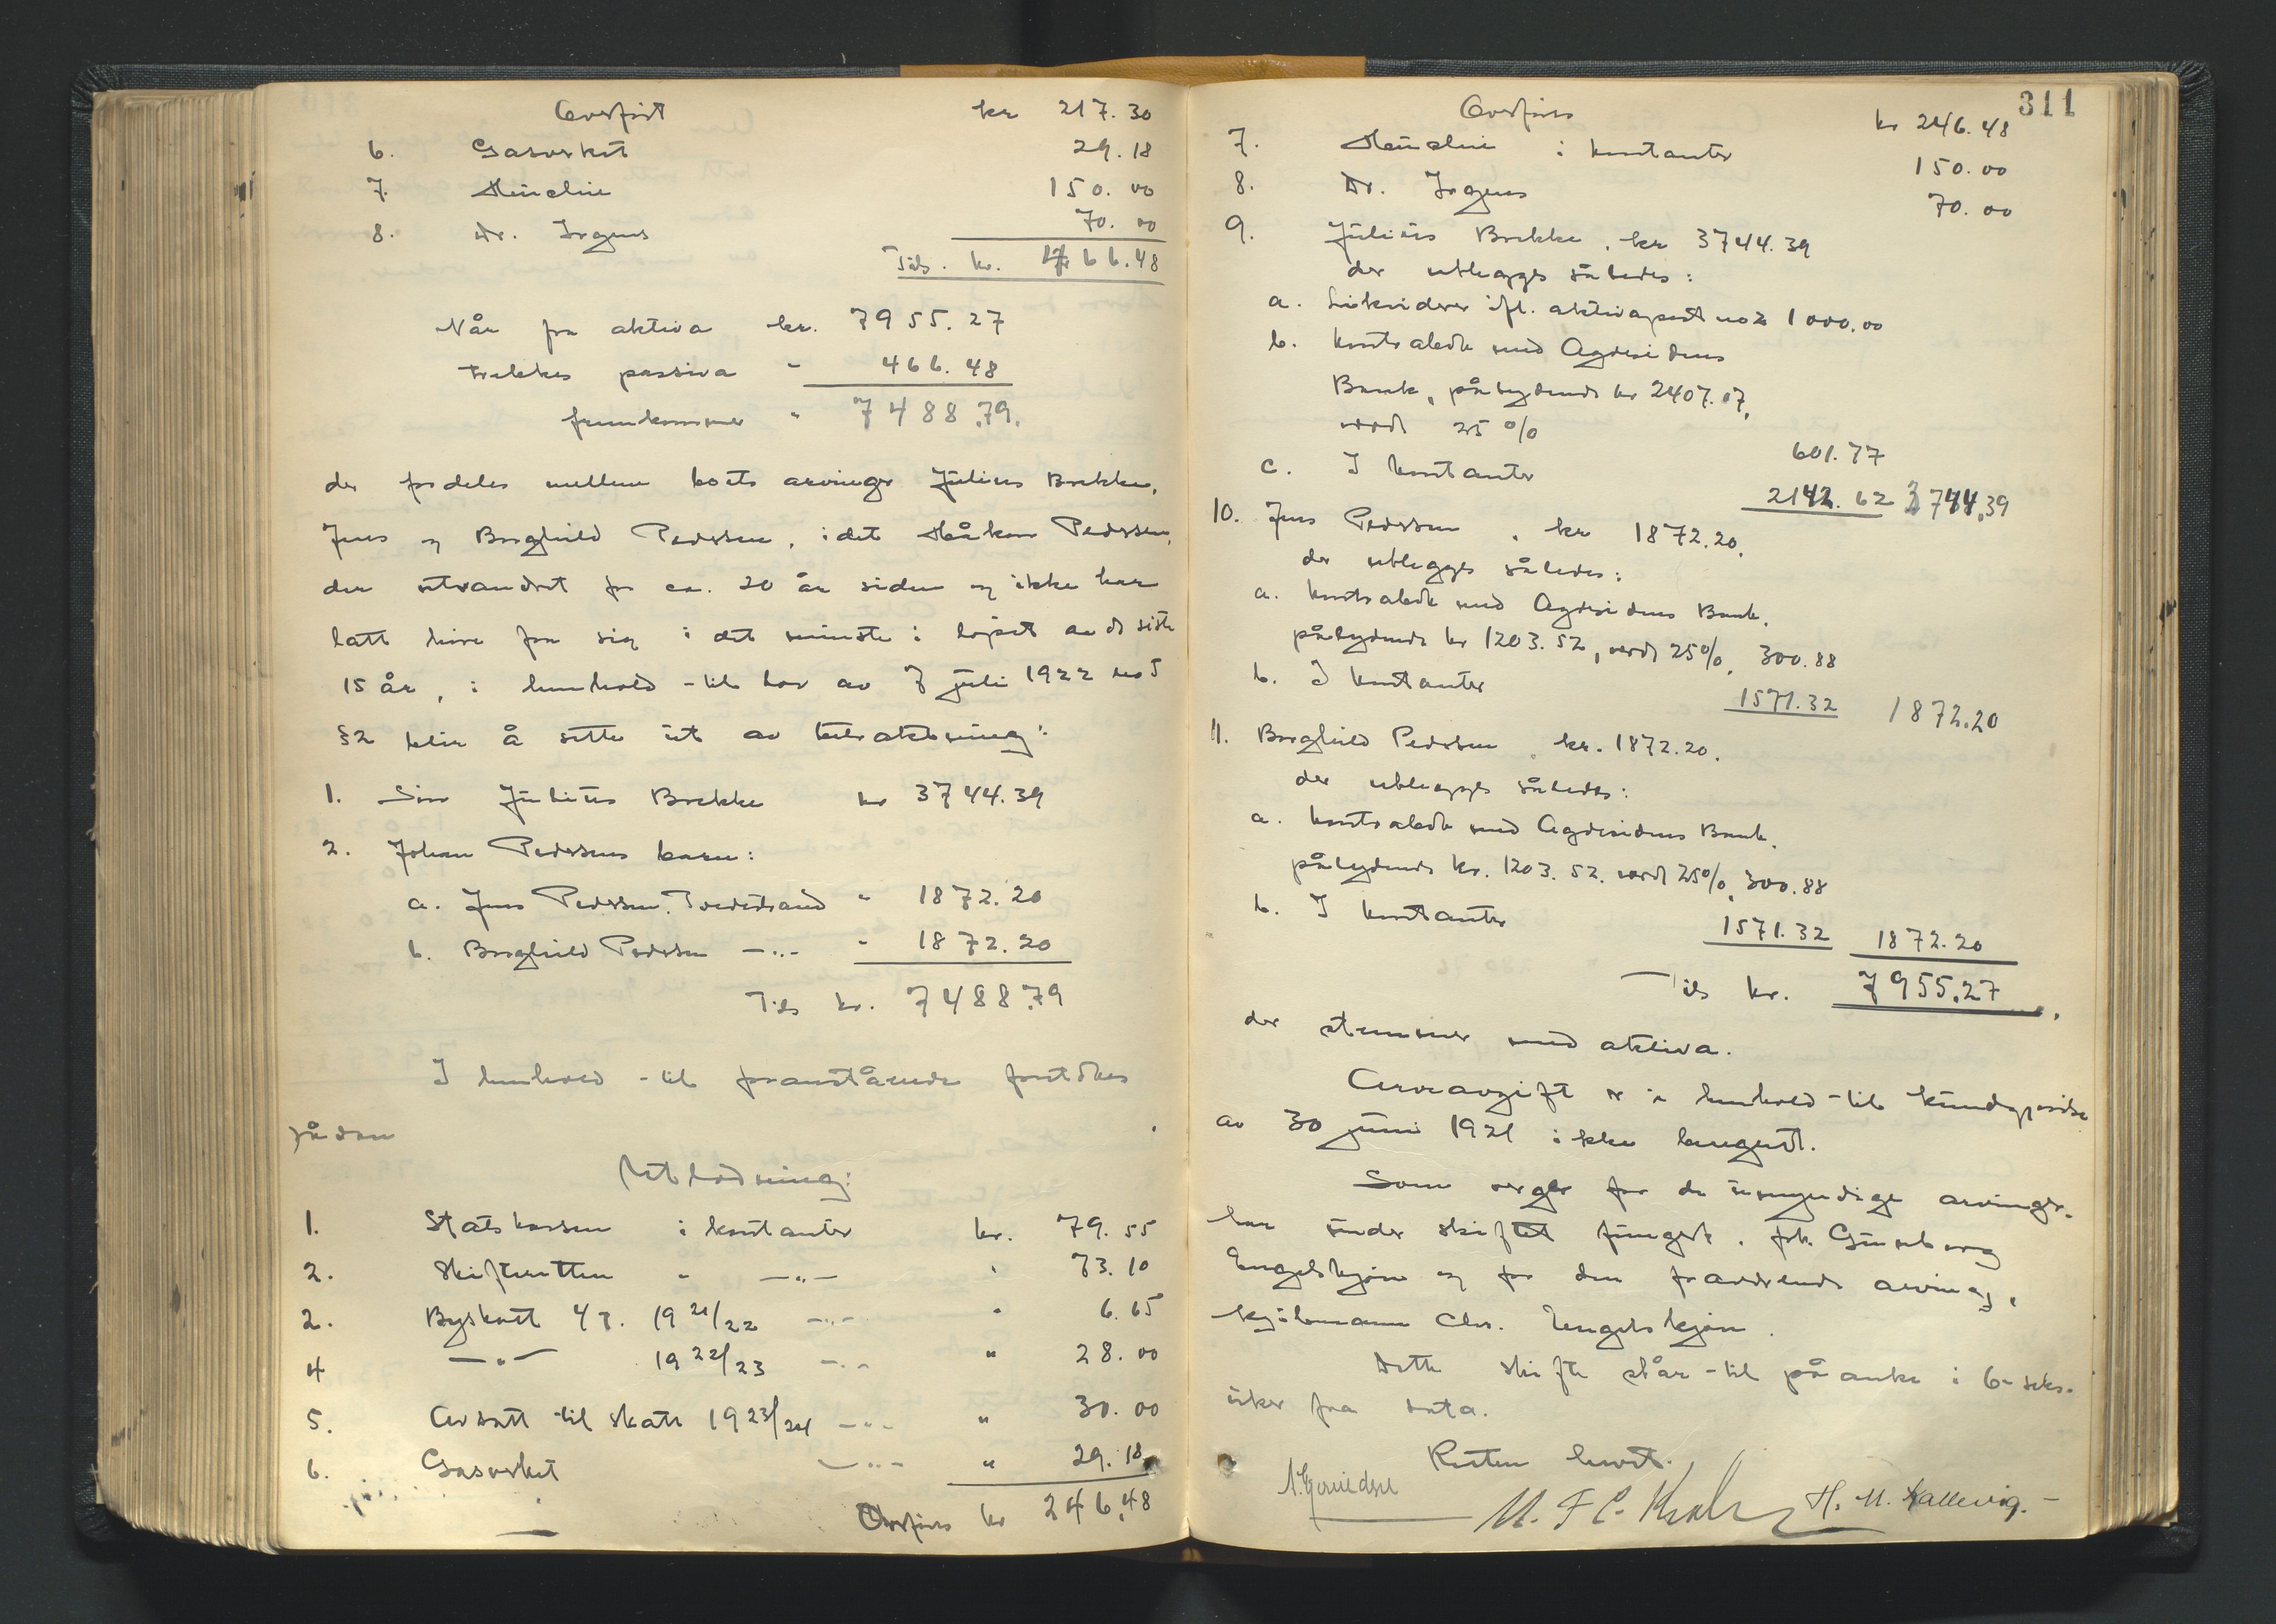 Overført kr 217.30
6. Gasverket 29.18
7. Husleie 150.00
8. Dr. Irgens 70.00
Tils. kr. 466.48
Når fra aktiva kr. 7955.27
trekkes passiva - 466.48
fremkommer " 7488.79.
der fordeles mellem boets arvinger Julius Brekke,
Jens og Borghild Pedersen, idet Håkon Pedersen,
der utvandret for ca. 20 år siden og ikke har
latt høre fra sig i det minste i løpet av de siste
15 år, i henhold til lov av 7 juli 1922 no 5
§2 blir å sette ut av betraktning:
1. Søn Julius Brekke kr 3744.39
2. Johan Pedersens barn:
a. Jens Pedersen, Tvedestrand " 1872.20
b. Borghild Pedersen —"— " 1872.20
Tils kr. 7488.79
I henhold til foranstående foretokes
sådan
Utlodning:
1. Statskassen i kontanter kr. 79.55
2. Skifteretten " —"— " 73.10
2. Byskatt 4 T. 1921/22 —"— " 6.65
4 —"— 1922/23 —"— " 28.00
5. Avsatt til skatt 1923/24 —"— " 30.00
6. Gasverket —"— " 29.18
Overføres kr 246.48
311
Overføres kr 246.48
7. Husleie i kontanter 150.00
8. Dr. Irgens 70.00
9. Julius Brekke, kr 3744.39
der utlegges således:
a. Likviderer ifl. aktivapost no 2 1000.00
b. kontrabok med Agdesidens
Bank, pålydende kr 2407.07,
verdt 25 % 601.77
c. I kontanter 2142.62 3744.39
10. Jens Pedersen, kr 1872.20.
der utlegges således:
a. kontrabok med Agdesidens Bank,
pålydende kr 1203.52, verdt 25%, 300.88
b. I kontanter 1571.32 1872.20
11. Borghild Pedersen, kr. 1872.20.
der utlegges således:
a. kontrabok med Agdesidens Bank,
pålydende kr. 1203.52. verdt 25%, 300.88
b. I kontanter 1571.32 1872.20
Tils kr. 7955.27.
der stemmer med aktiva.
Arveavgift er i henhold til kundgjørelse
av 30 juni 1921 ikke beregnet.
Som verger for de umyndige arvinger
har under skiftet fungert, frk. Gunborg
Engelskjøn og for den fraværende arving,
kjøbmann Chr. Engelskjøn.
Dette skifte står til påanke i 6-seks-
uker fra dato.
Retten hevet.
H. M. Kallevig.